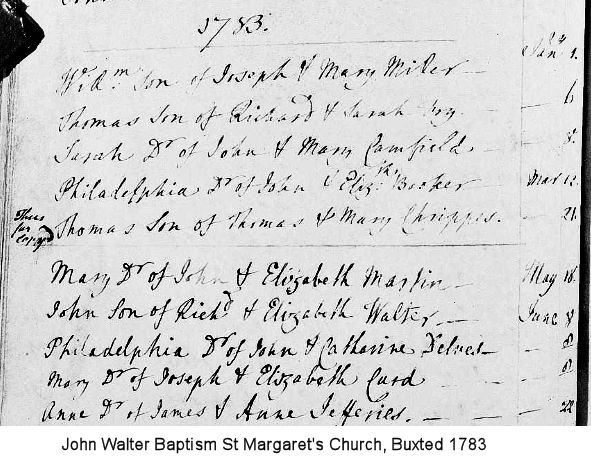 1783.
Will.m Son of Joseph & Mary Miller Jan.y 1.
Thomas Son of Richard & Sarah Ivy. 6
Sarah D.r of John & Mary Camfield 8.
Philadelphia D.r of John & Eliz.th Booker Mar 12.
Thomas Son of Thomas & Mary Chrippes. 21.
Thus
far
Copy'd
Mary D.r of John & Elizabeth Martin May 18.
John Son of Rich.d & Elizabeth Walter June 8
Philadelphia D.r of John & Catharine Delves 8
Mary D.r of Joseph & Elisabeth Curd 8
Anne D.r of James & Anne Jefferies. 22
John Walter Baptism St Margaret's Church, Buxted 1783